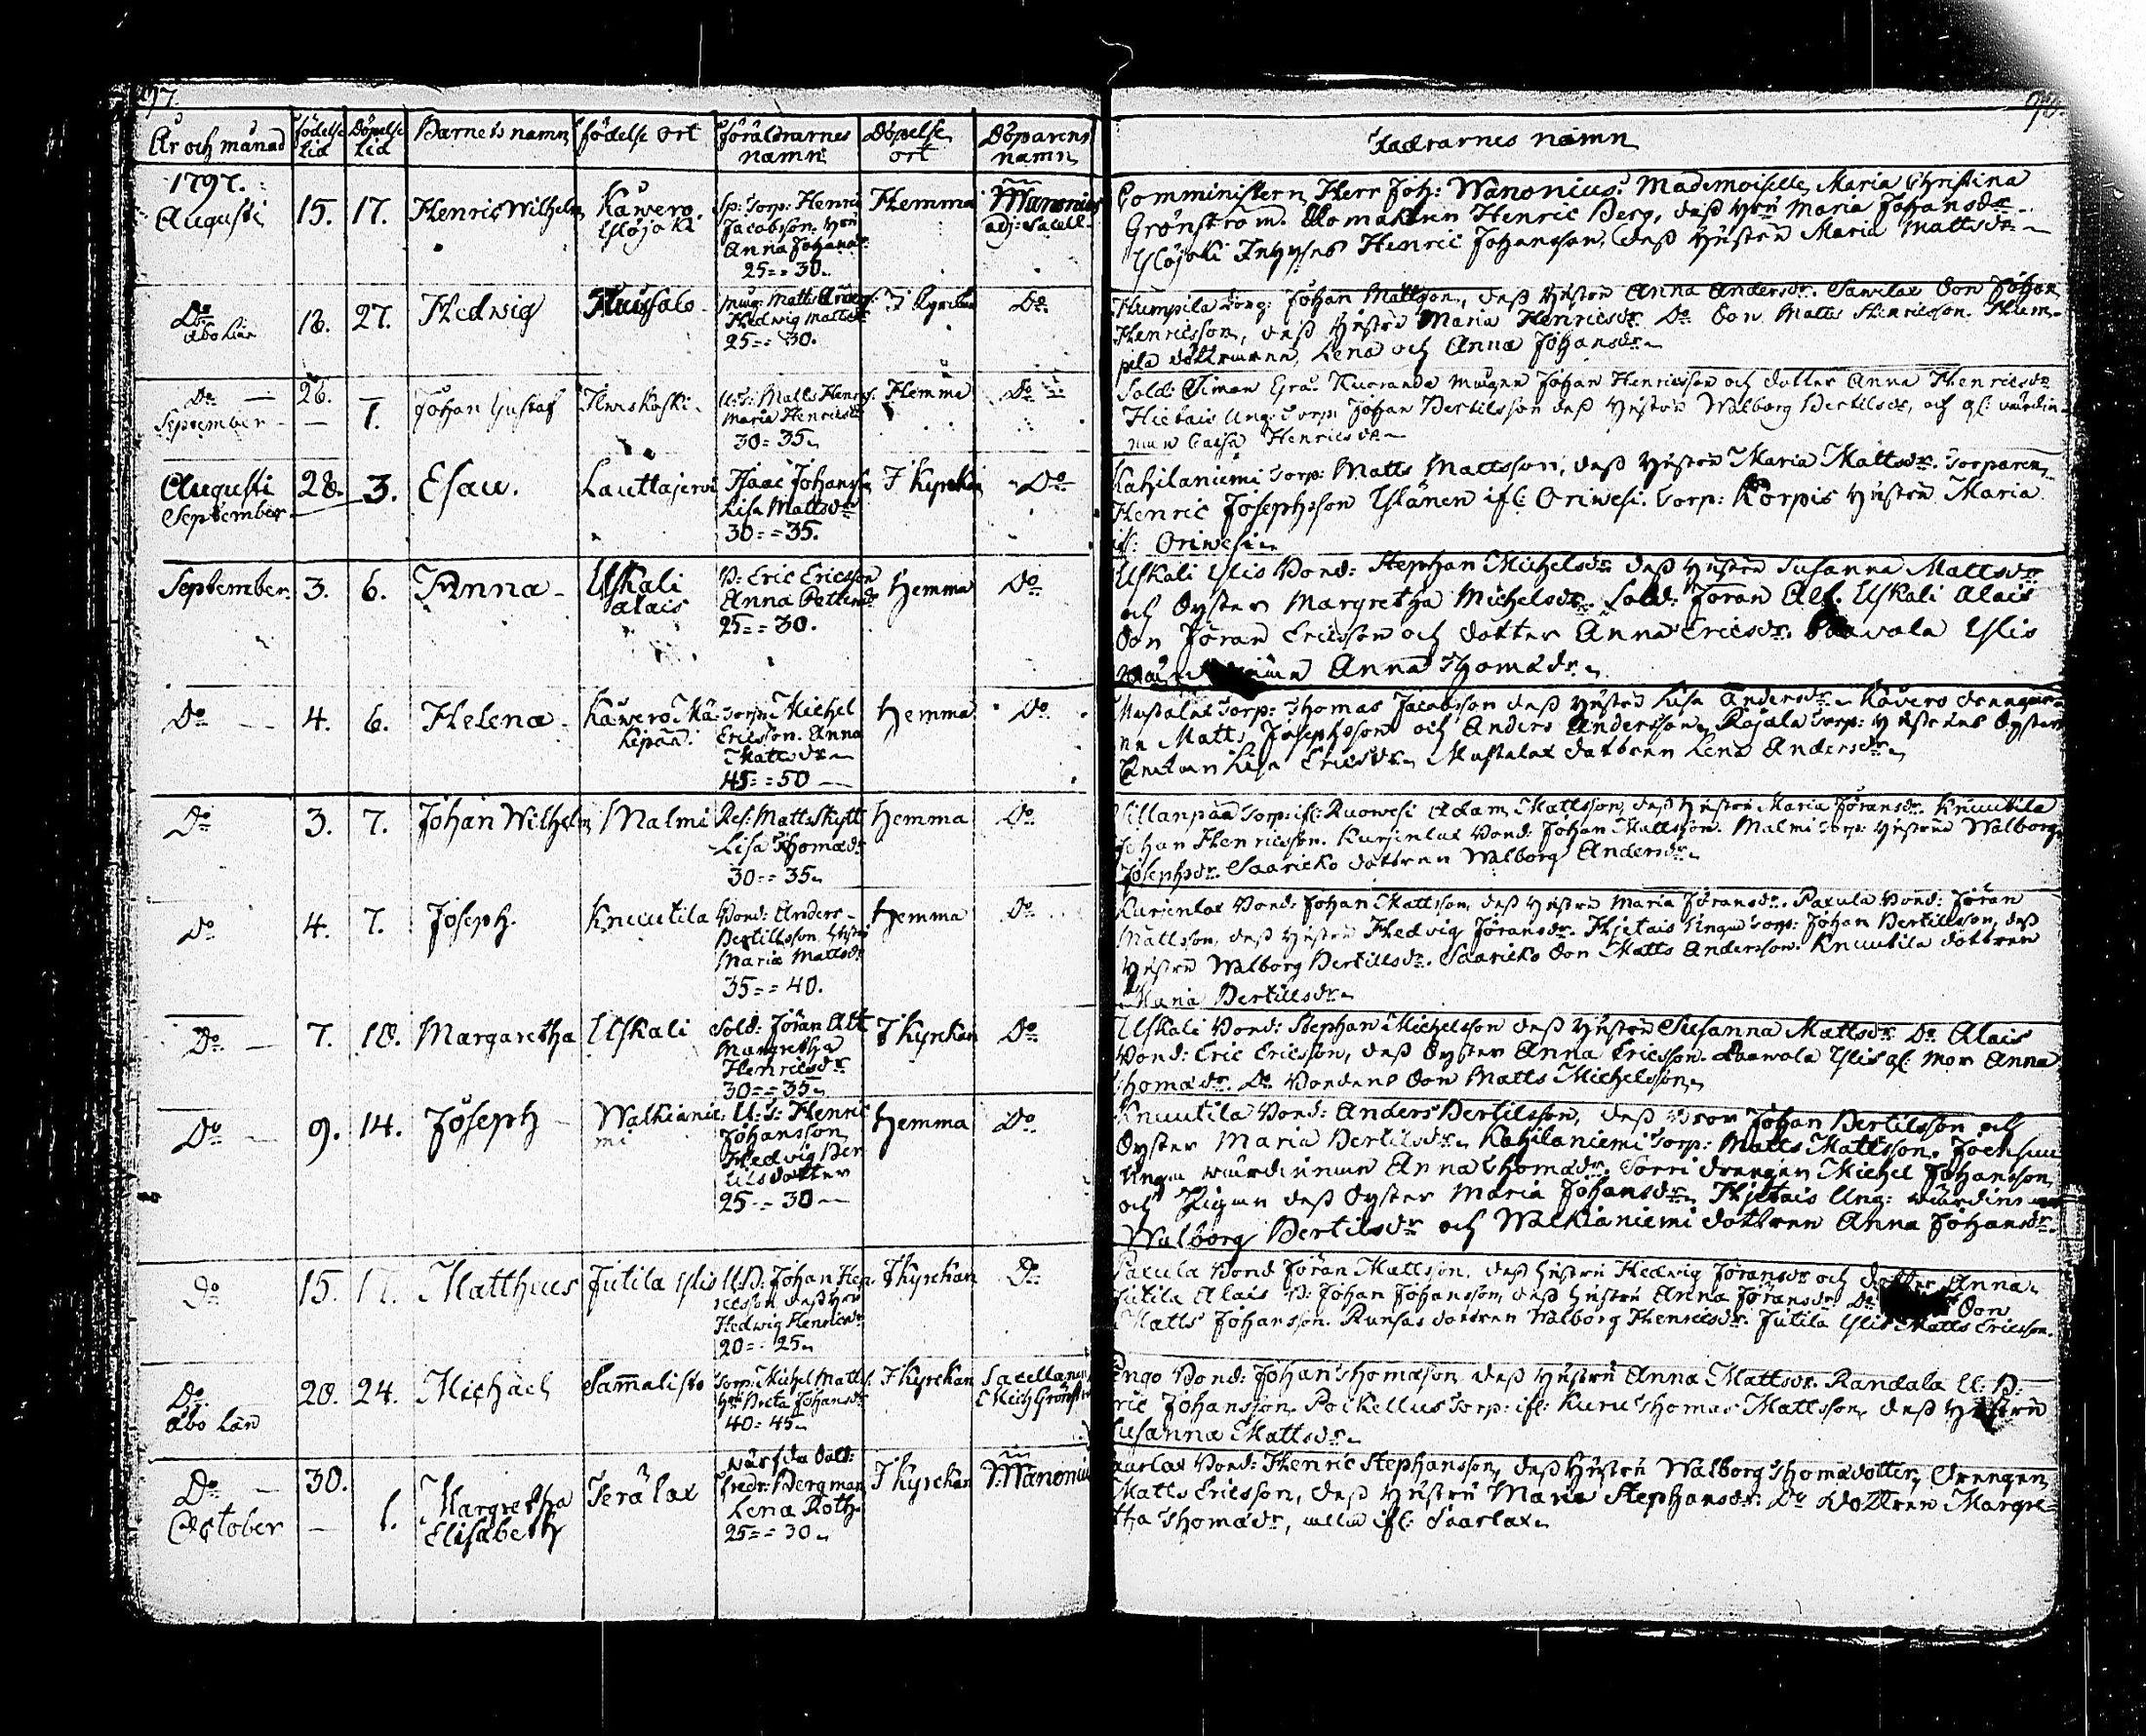 97.
År och månad födelse tid Döpelse tid Barnets namn födelse ort föräldrarnes namn Döpelse ort Döparens namn
1797.
Augusti 15. 17. Henric Wilhelm Kåwero Ylöjoki Sp: Torp: Henric Hemma Wanonius
Jacobsson. Hru adj: Sacell.
Anna Johansdr
25 = = 30.
Do Åbo Län 18. 27. Hedwig Huissalo Matts Hedwig Mattsdr I Kyrckan Do
25 = = 30.
Do 26. — Johan Gustaf Matts Henrs. Hemma Do
September — 1. Maria Henricsdr
30 = 35.
Augusti 28. 3. Esau. Lauttajervi Isaac Johanss I Kyrckan Do
September Lisa Mattsdr
30 = = 35.
September. 3. 6. Anna Uskali Alais B: Eric Ericsson Hemma Do
Anna
25 = = 30.
Do 4. 6. Helena Kåwero Torp: Michel Hemma Do
Ericsson. Anna
Mattsdr
45 = = 50
Do 3. 7. Johan Wilhelm Malmi Ref: Matts Skytt Hemma Do
Lisa Thomædr
30 = = 35
Do 4. 7. Joseph. Knuutila Bond: Anders Hemma Do
Bertillsson Hustru
Maria Mattsdr
35 = = 40.
Do 7. 10. Margaretha Uskali Sold: Jöran Alt I Kyrckan Do
Margretha
Henricsdr
30 = = 35
Do 9. 14. Joseph Walkianiemi U: T: Henric Hemma Do
Johansson
Hedvig Bertilsdotter
25 = = 30
Do 15. 17. Matthæus Jutila Yslis U. B: Johan Henricsson dess Hru I Kyrckan Do
Hedwig Henricsdr
20 = = 25
Do Åbo Län 20. 24. Michael Sammalisto Torp: Michel Matts. I Kyrckan Sacellanus
Hru Breta Johansdr
40 = 45
Do 30. — Margretha Terälax Fredr: Bergman I Kyrckan Wanonius
October — 1. Elisabeth Lena Roth
25 = = 30
98.
Faddrarnes namn
Comministern Herr Joh: Wanonius. Mademoiselle Maria Christina
Grönström. Henric Berg, dess Hru Maria Johansdr
Ylöjoki Inhyses Henric Johansson, dess Hustru Maria Mattsdr
Humpila Torp: Johan Mattsson, dess Hustru Anna Andersdr. Sawilax Son Johan
Henricsson, dess Hustru Maria Henricsdr Do Son Matts Henricsson. Humpila döttrarna Lena och Anna Johansdr
Johan Henricsson och dotter Anna Henricsdr
Hietais Ung: Torp: Johan Bertilsson dess Hustru Walborg Bertilsdr, och gl: värdinnan Caisa Henricsdr
Kahilaniemi Torp: Matts Mattsson, dess Hustru Maria Mattsdr. Torparen
Henric Josephsson ifl: Oriwesi. Torp: Korpis Hustru Maria
ifl: Oriwesi
Uskali Yslis Bond: Stephan Michelss dess Hustru Susanna Mattsdr
och Syster Margretha Michelsdr. Sold: Jöran Alt. Uskali Alais
Son Jöran Ericsson och dotter Anna Ericsdr. Yslis
Anna Thomædr
Mustalax Torp: Thomas Jacobsson dess Hustru Lisa Andersdr. Kåvero drengarne Matts Josephsson och Anders Andersson. Rajala Torp: Hustrus Syster
Lisa Ericsdr. Mustalax dottren Lena Andersdr
Sillanpää Torp: ifl: Ruowesi Adam Mattsson, dess Hustru Maria Jöransdr. Knuutila
Johan Henricsson. Kurjenlax Bond: Johan Mattsson. Malmi Torp: Hustru Walborg
Josephsdr. Saaricko dottren Walborg Andersdr
Kurjenlax Bond: Johan Mattsson, dess Hustru Maria Jöransdr. Paxula Bond: Jöran
Mattsson, dess Hustru Hedvig Jöransdr. Hietais Unga Torp: Johan Bertillsson, dess
Hustru Walborg Bertillsdr. Saaricko Son Matts Andersson. Knuutila dottren
Maria Bertillsdr
Uskali Bond: Stephan Michelsson dess Hustru Susanna Mattsdr Do Alais
Bond: Eric Ericsson, dess Syster Anna Ericsson. Yslis gl: mor Anna
Thomædr. Do Bondens Son Matts Michelsson
Knuutila Bond: Anders Bertilsson, dess Bror Johan Bertilsson och
Syster Maria Bertilsdr. Kahilaniemi Torp: Matts Mattsson.
Unga värdinnan Anna Thomædr. Sorri drengen Michel Johansson
och Pigan dess Syster Maria Johansdr. Hjetais Ung: värdinnan
Walborg Bertilsdr och Walkianiemi dottren Anna Johansdr
Paxula Bond Jöran Mattsson, dess Hustru Hedwig Jöransdr och dotter Anna
Jutila Alais B: Johan Johansson, dess Hustru Anna Jöransdr Do Son
Matts Johansson. dottren Walborg Henricsdr. Jutila Yslis Matts Ericsson.
Bond: Johan Thomasson dess Hustru Anna Mattsdr. Randala U: B:
Eric Johansson. Poikellus Torp: ifl: Kuru Thomas Mattsson, dess Hustru
Susanna Mattsdr
Bond: Henric Stephansson, dess Hustru Walborg Thomædotter, drengen
Matts Ericsson, dess Hustru Maria Stephansdr. Do dottren Margretha Thomædr,